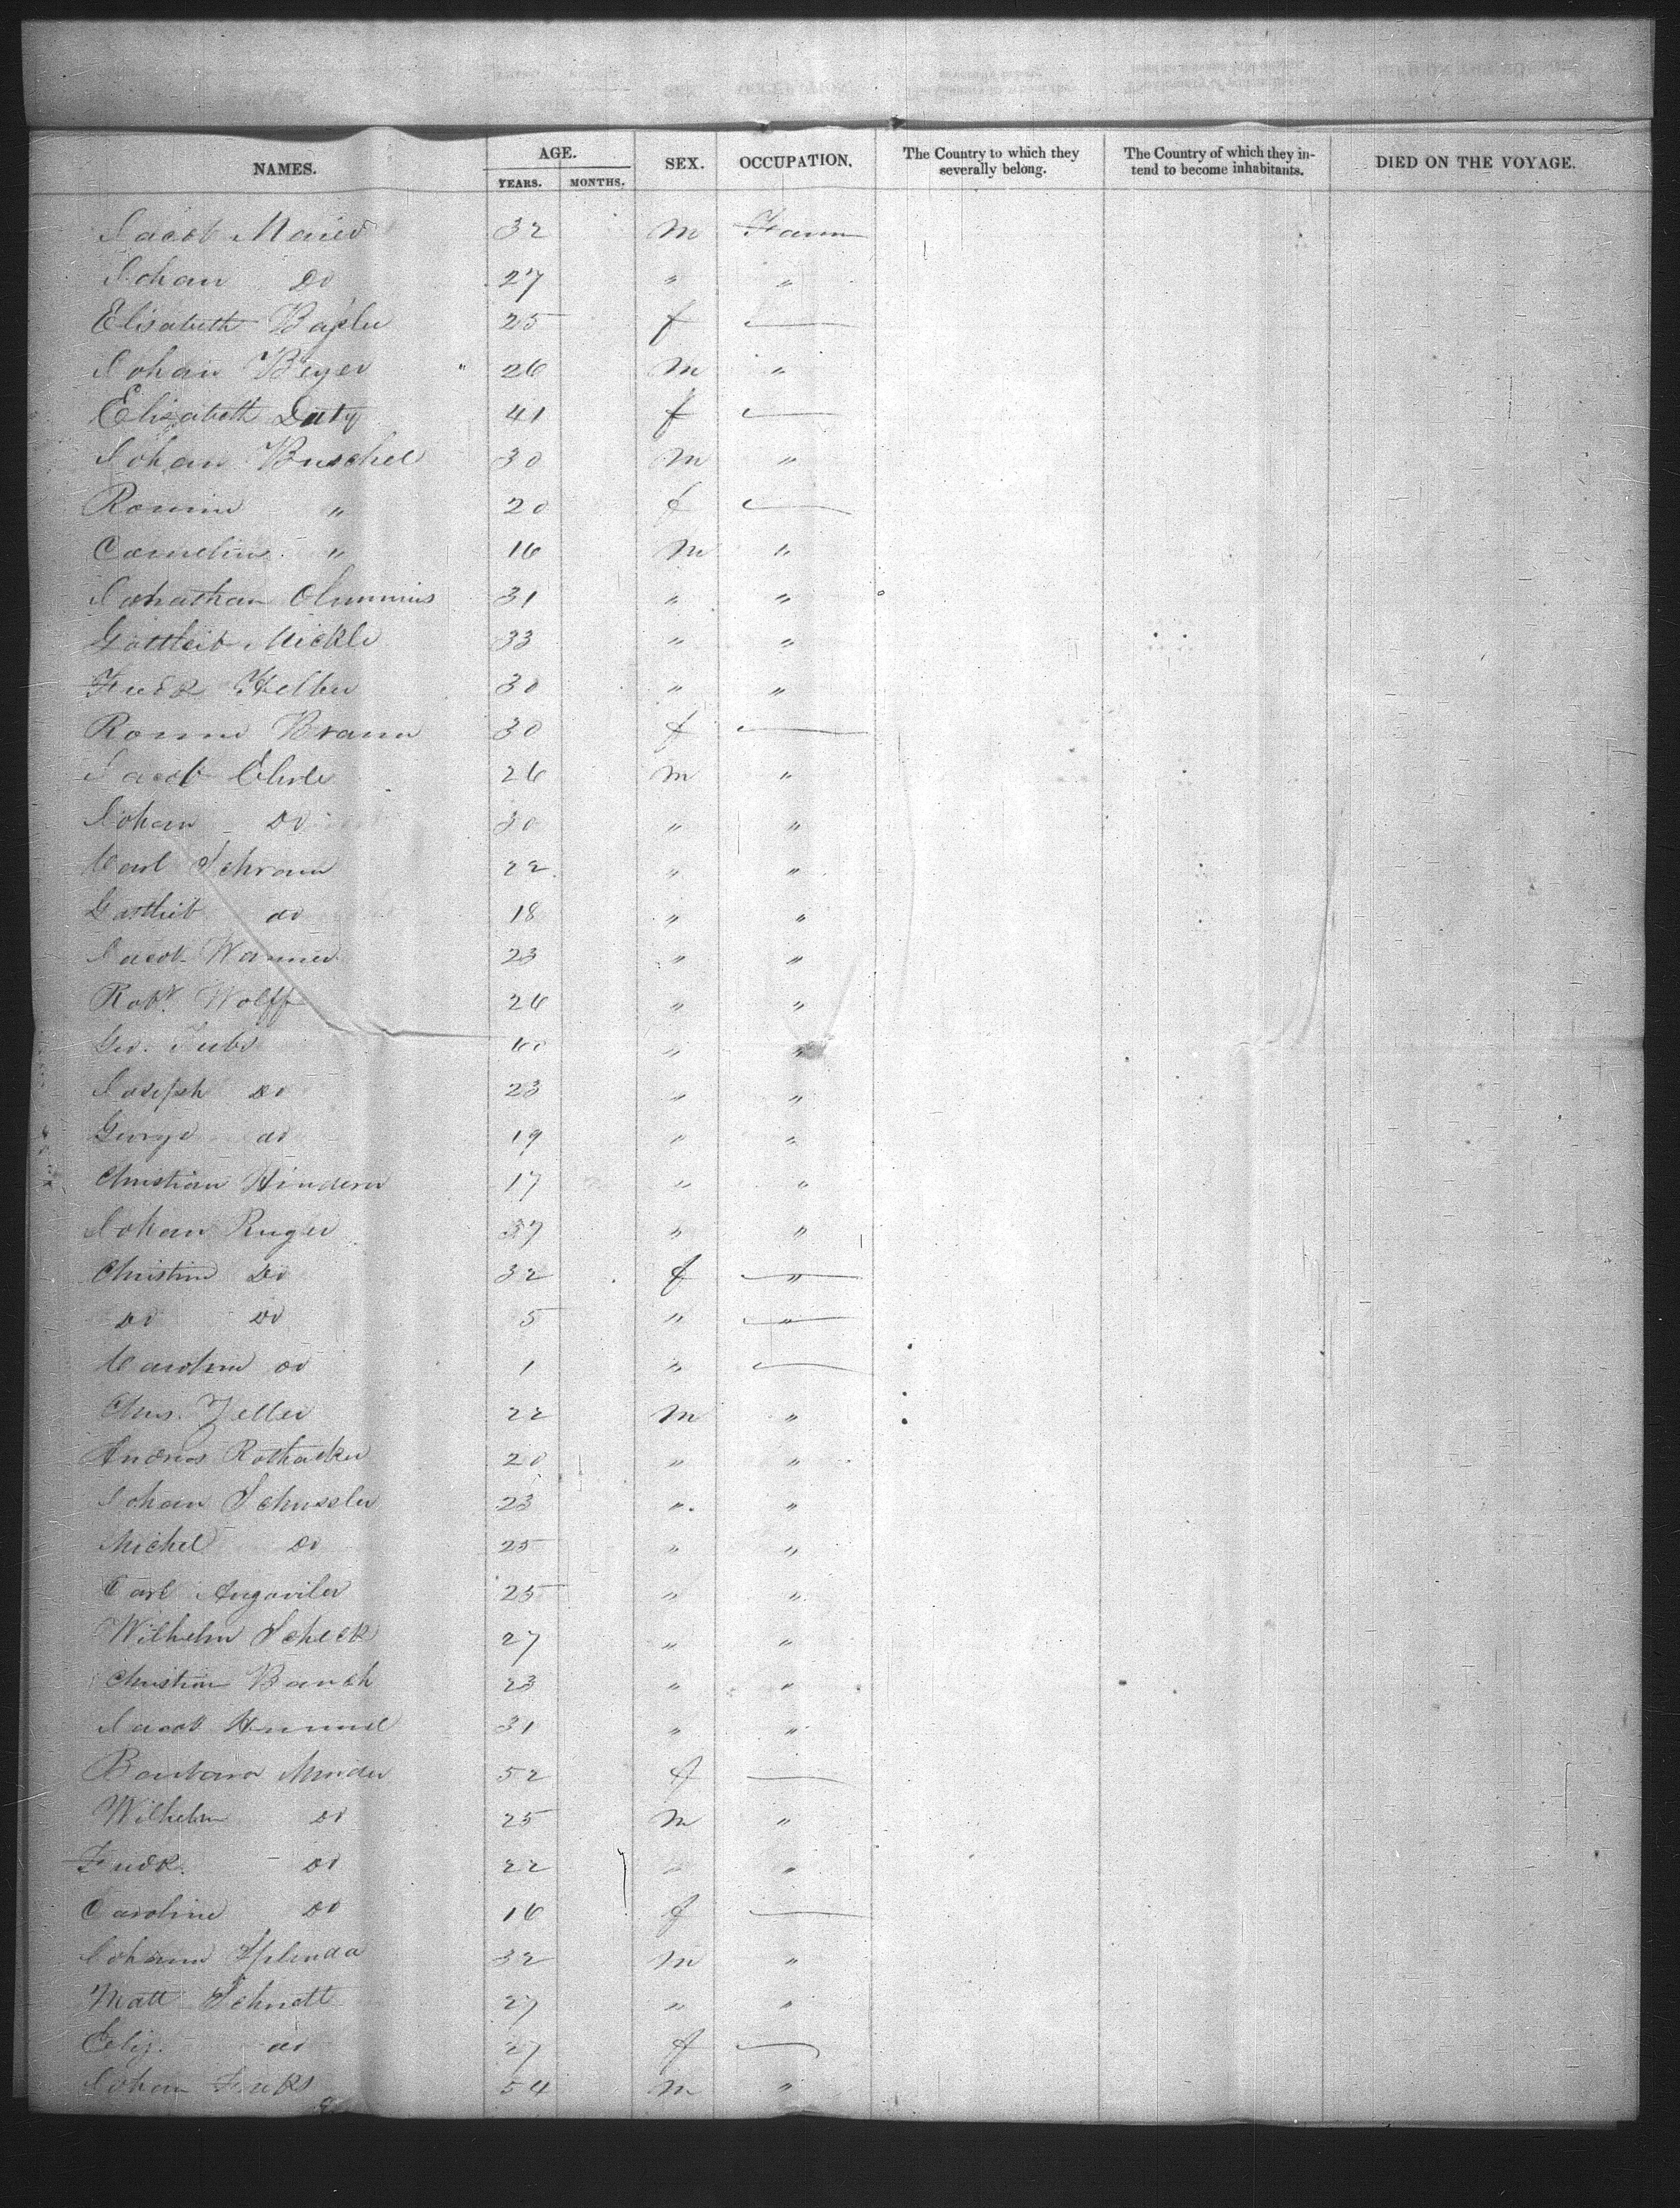 NAMES. AGE. SEX. OCCUPATION. The Country to which they severally belong. The Country of which they intend to become inhabitants. DIED ON THE VOYAGE.
YEARS. MONTHS.
Jacob Maier 32 m Farm
Johan Do 27 " "
Elisabeth 25 f —
Johan Beyer " 26 m "
Elizabeth Duty 41 f —
Johan Buschel 30 m "
Rosine " 20 f —
Cornelius " 16 m "
Jonathan 31 " "
Gottleib Mickle 33 " "
Fredk Heller 30 " "
Rosine Braun 30 f —
Jacob Ehrle 26 m "
Johan Do 30 " "
Carl Schram 22 " "
Gottlieb do 18 " "
Jacob Wanner 23 " "
Robt. Wolff 26 " "
Geo. 60 " "
Joseph Do 23 " "
George do 19 " "
Christian Hinderer 17 " "
Johan Ruger 37 " "
Christine Do 32 f "
Do Do 5 " "
Caroline do 1 " —
Chris. Zeller 22 m "
Andreas Rothacker 20 " "
Johan Schussler 23 " "
Michel Do 25 " "
Carl 25 " "
Wilhelm Scheck 27 " "
Christian Bauch 23 " "
Jacob Hummel 31 " "
Barbara Minder 52 f —
Wilhelm Do 25 m "
Fredk. Do 22 " "
Caroline Do 16 f —
Johann 32 m "
Matt Schnett 27 " "
Eliz. do 27 f —
Johan Fuks 54 m "